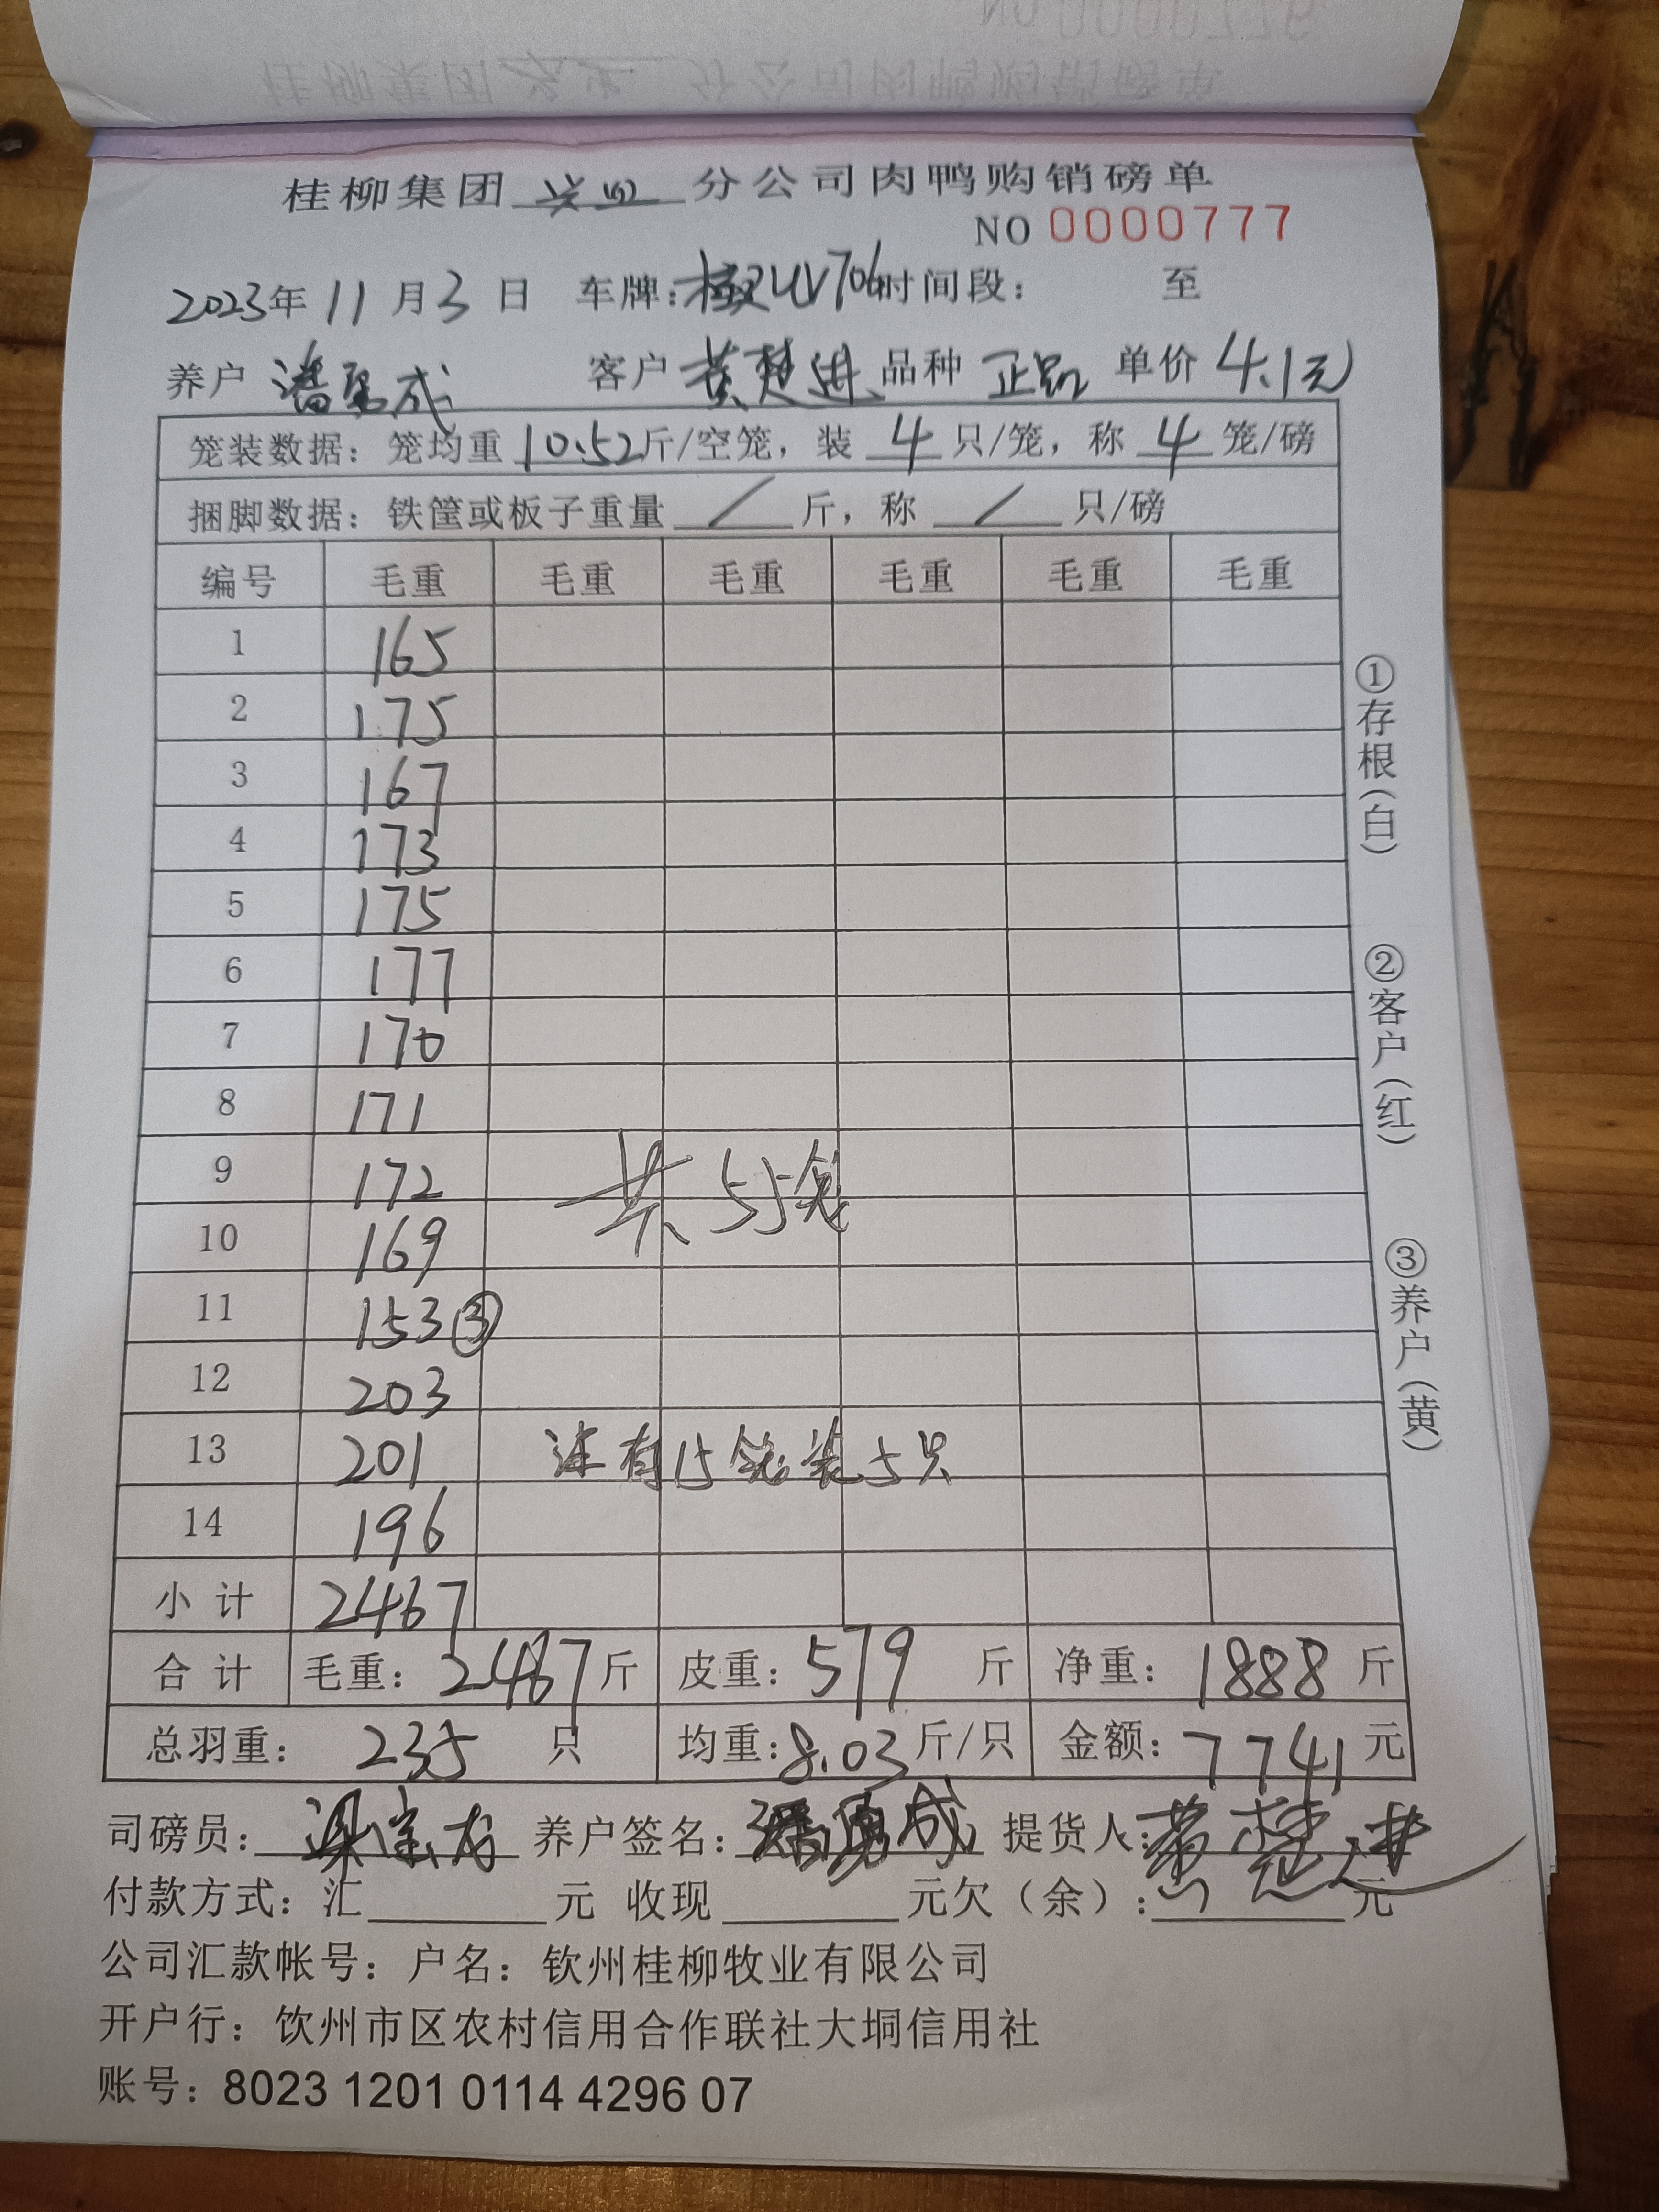 桂柳集团 分公司肉鸭购销磅单
NO 0000777
2023年11月3日 车牌: 706 时间段: 至
养户 潘勇成 客户 黄楚进 品种 正品 单价 4.1元
笼装数据: 笼均重 10.52斤/空笼, 装 4 只/笼, 称 4 笼/磅
捆脚数据: 铁筐或板子重量 / 斤, 称 / 只/磅
编号 毛重 毛重 毛重 毛重 毛重 毛重
1 165
2 175
3 167
4 173
5 175
6 177
7 170
8 171
9 172 共55笼
10 169
11 153③
12 203
13 201 注有15笼装5只
14 196
小计 2467
合计 毛重: 2467斤 皮重: 579 斤 净重: 1888斤
总羽重: 235 只 均重: 8.03斤/只 金额: 7741元
司磅员: 梁宗龙 养户签名: 潘勇成 提货人: 黄楚进
付款方式: 汇 元 收现 元欠(余): 元
公司汇款帐号: 户名: 钦州桂柳牧业有限公司
开户行: 饮州市区农村信用合作联社大垌信用社
账号: 8023 1201 0114 4296 07
①存根(白)
②客户(红)
③养户(黄)